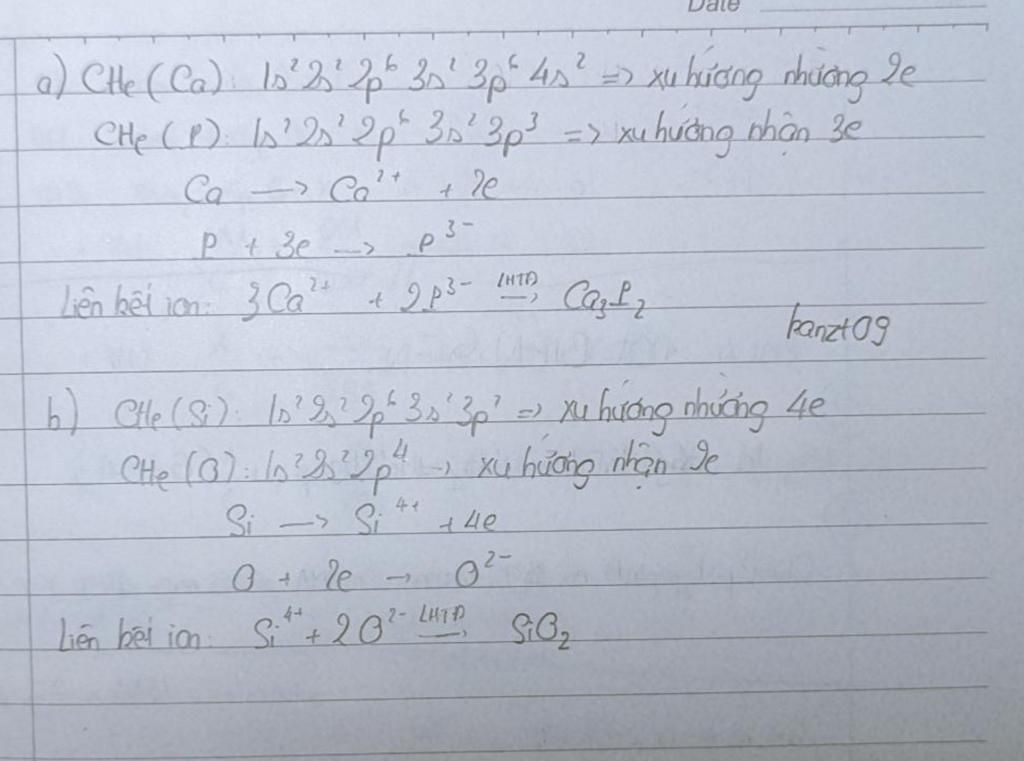 Date
a) CHe (Ca): 1s² 2s² 2p⁶ 3s² 3p⁶ 4s² => xu hướng nhường 2e
CHe (P): 1s² 2s² 2p⁶ 3s² 3p³ => xu hướng nhận 3e
Ca → Ca²⁺ + 2e
P + 3e → P³⁻
Liên kết ion: 3Ca²⁺ + 2P³⁻ LHTĐ→ Ca₃P₂
kanzt09
b) CHe (Si): 1s² 2s² 2p⁶ 3s² 3p² => xu hướng nhường 4e
CHe (O): 1s² 2s² 2p⁴ → xu hướng nhận 2e
Si → Si⁴⁺ + 4e
O + 2e → O²⁻
Liên kết ion: Si⁴⁺ + 2O²⁻ LHTĐ→ SiO₂